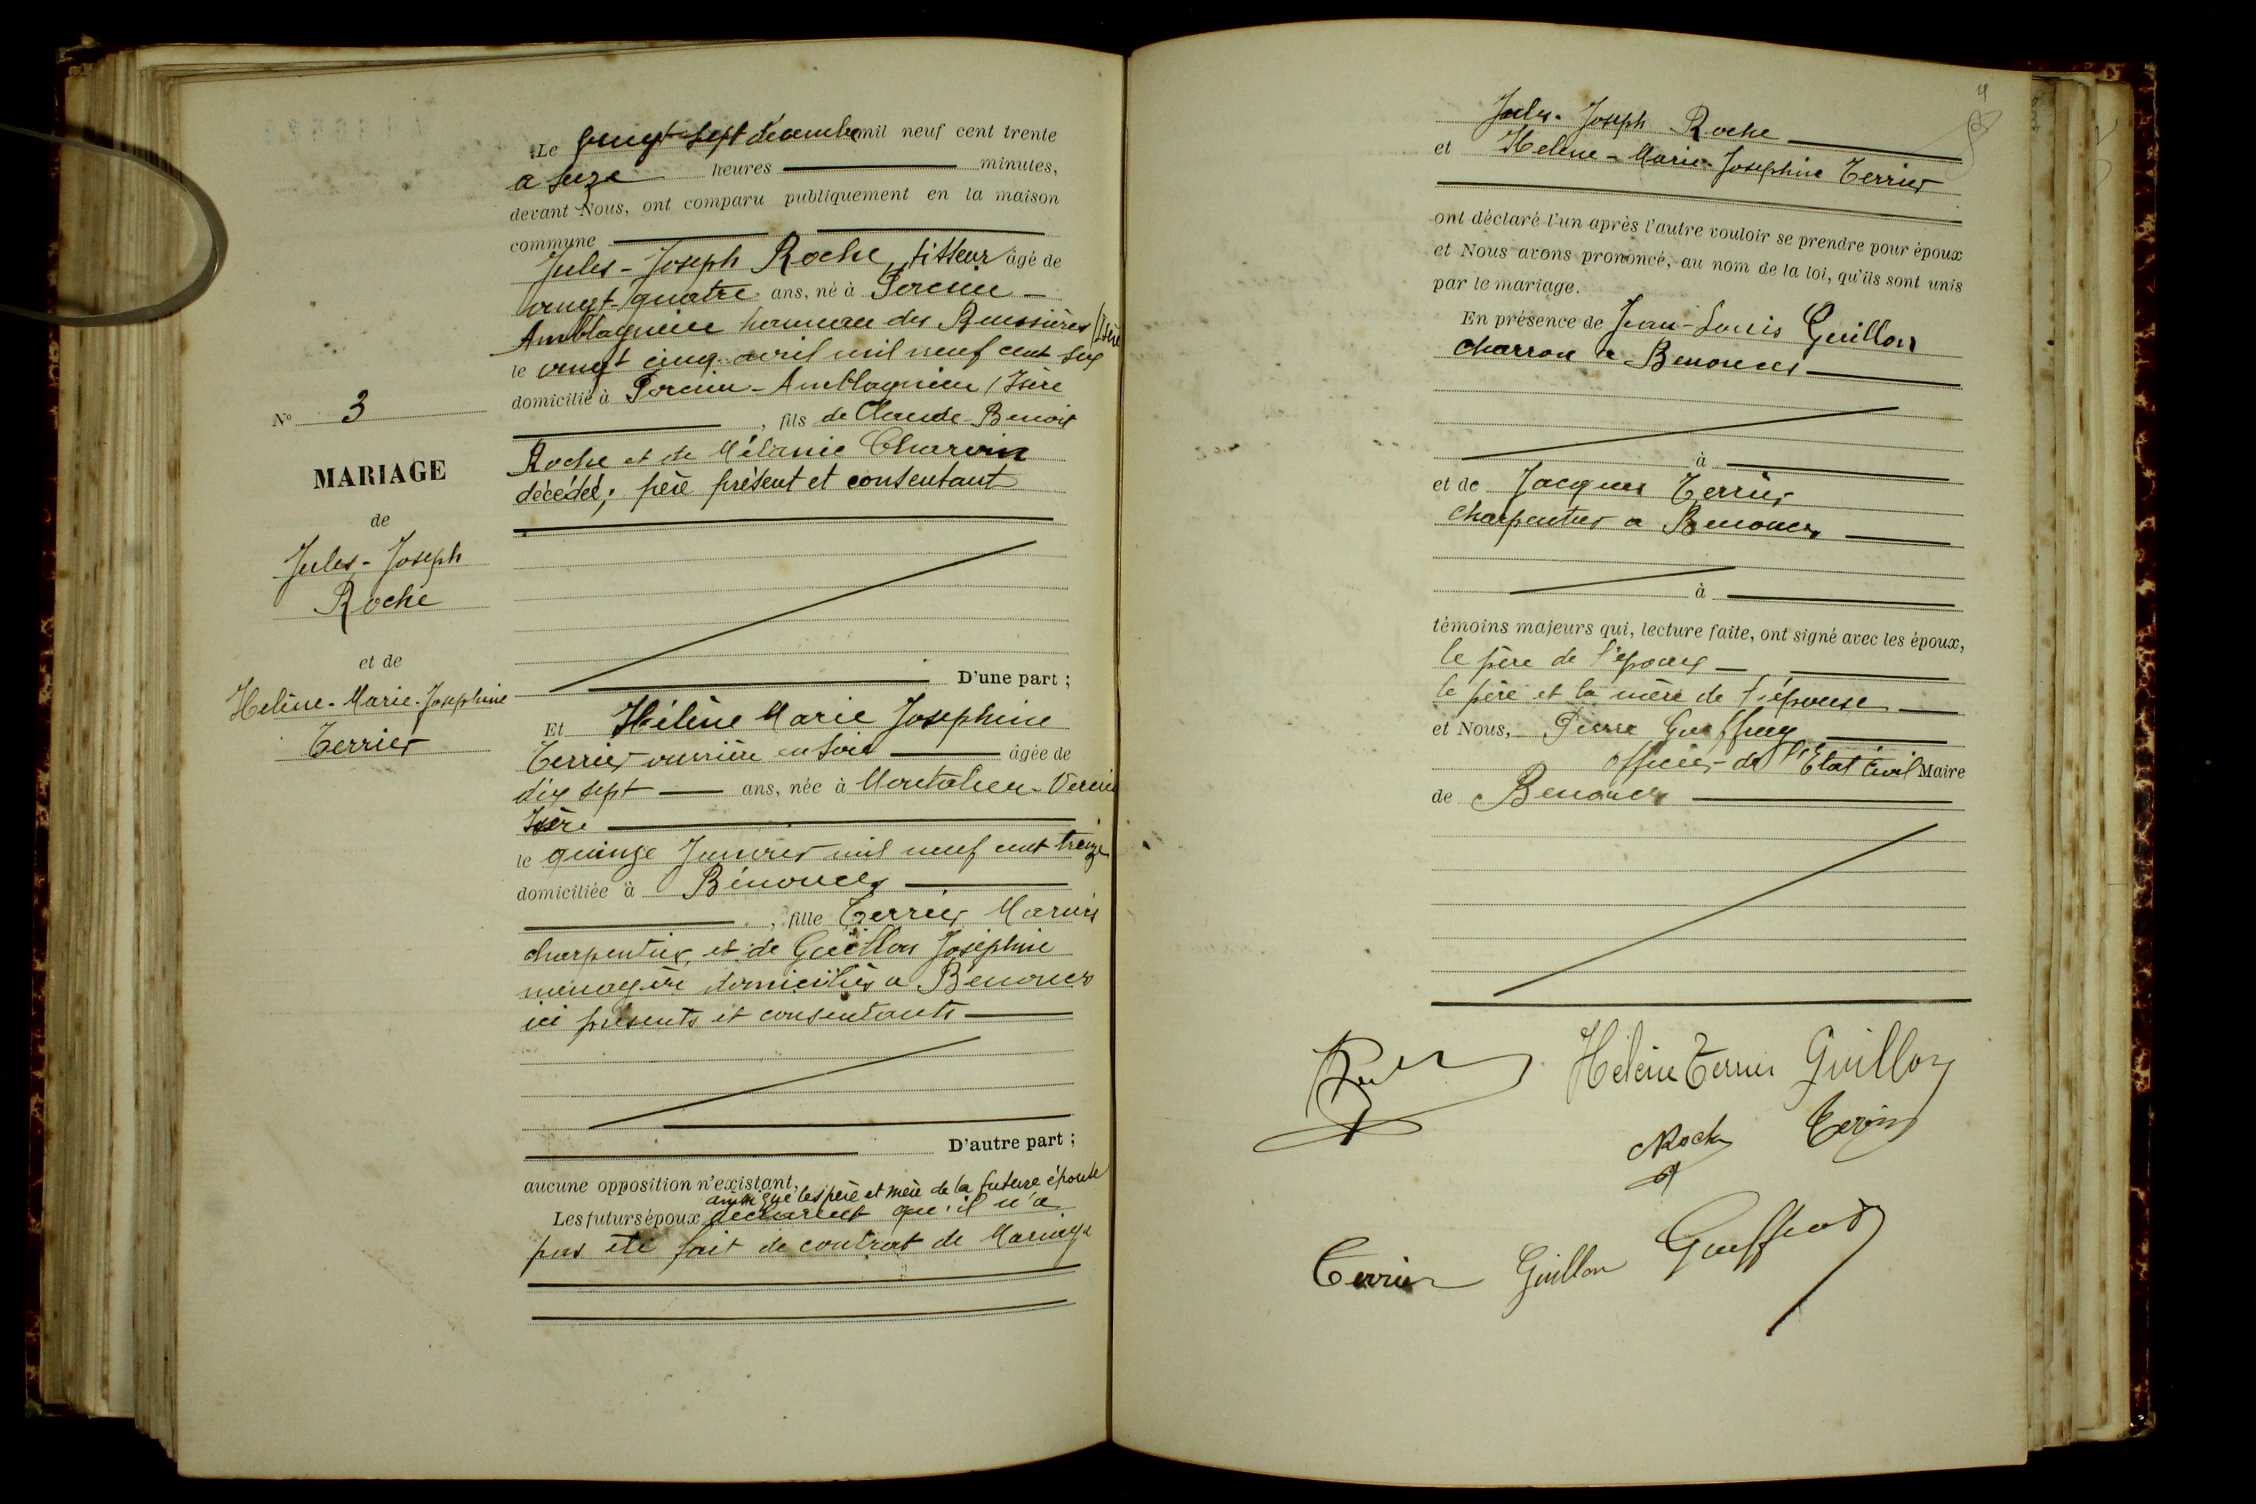 Le vingt-sept décembre mil neuf cent trente
a seize heures minutes,
devant Nous, ont comparu publiquement en la maison
commune
Jules-Joseph Roche, tisseur âgé de
vingt-quatre ans, né à Porcieu-
Amblagnieu hameau des Buissières (Isère
le vingt cinq avril mil neuf cent six
domicilié à Porcieu-Amblagnieu (Isère
, fils de Claude Benoit
Roche et de Mélanie Charvin
décédée; père présent et consentant
D'une part ;
Et Hélène Marie Josephine
Terrier ouvrière en soie âgée de
dix sept ans, née à Montalieu-Vercieu
Isère
le quinze Janvier mil neuf cent treize
domiciliée à Bénonces
, fille Terrier Marius
charpentier, et de Guillon Joséphine
ménagère domiciliés a Benonces
ici présents et consentants
D'autre part ;
aucune opposition n'existant,
ainsi que les père et mère de la future épouse
Les futurs époux déclarent qu'il n'a
pas été fait de contrat de Mariage
N° 3
MARIAGE
de
Jules-Joseph
Roche
et de
Helène-Marie-Josephine
Terrier
4
Jules-Joseph Roche
et Helene-Marie-Josephine Terrier
ont déclaré l'un après l'autre vouloir se prendre pour époux
et Nous avons prononcé, au nom de la loi, qu'ils sont unis
par le mariage.
En présence de Jean-Louis Guillon
charron a Benonces
à
et de Jacques Terrier
charpentier a Benonces
à
témoins majeurs qui, lecture faite, ont signé avec les époux,
le père de l'époux
le père et la mère de l'épouse
et Nous, Pierre
officier de l'Etat Civil Maire
de Benonces
Hélène Terrier Guillon
Roche
Terrier Guillon